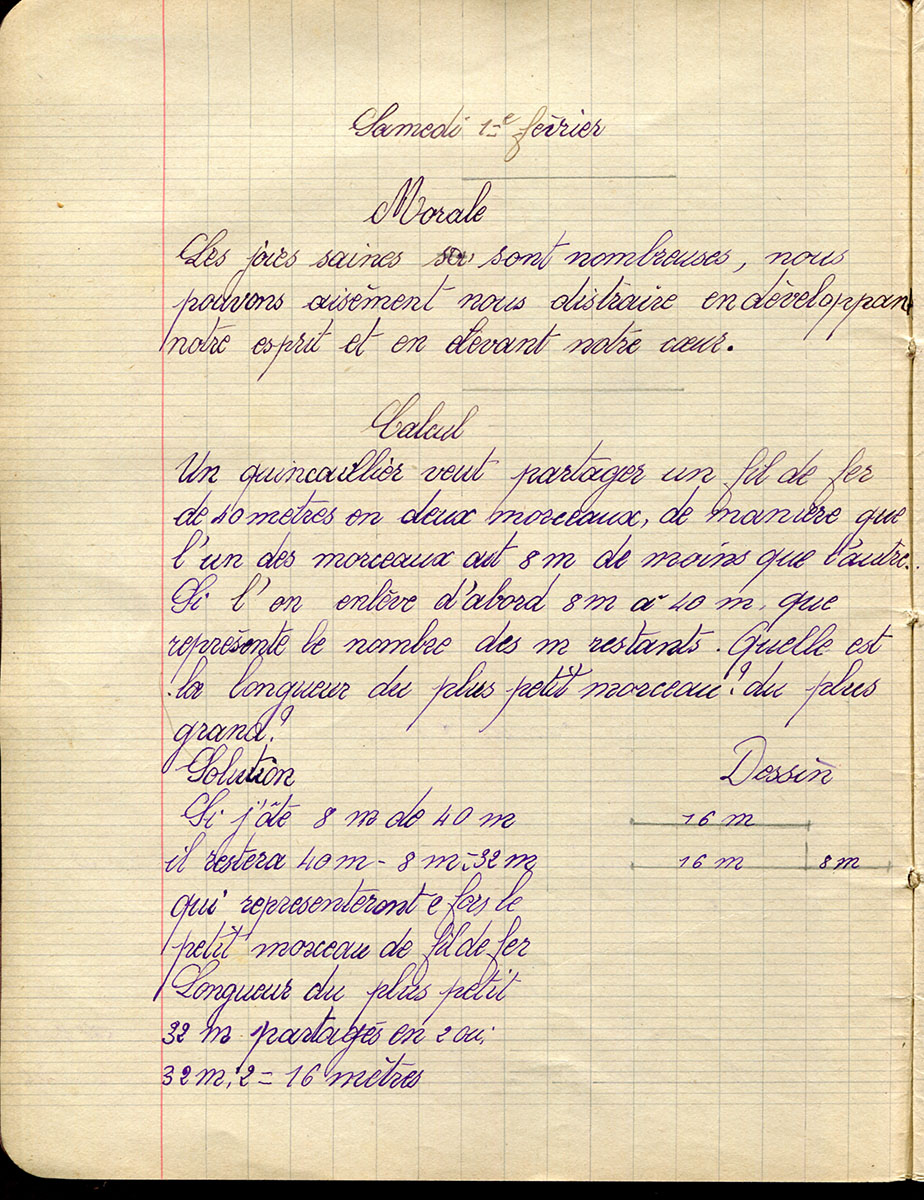 Samedi 1e février
Morale
Les joies saines sont nombreuses, nous
pouvons aisément nous distraire en développan
notre esprit et en élevant notre cœur.
Calcul
Un quincaillier veut partager un fil de fer
de 40 mètres en deux morceaux, de manière que
l'un des morceaux ait 8 m de moins que l'autre.
Si l'on enlève d'abord 8 m à 40 m, que
représente le nombre des m restants. Quelle est
la longueur du plus petit morceau? du plus
grand?
Solution Dessin
Si j'ôte 8 m de 40 m 16 m
il restera 40 m - 8 m = 32 m 16 m 8 m
qui représenteront 2 fois le
petit morceau de fil de fer
Longueur du plus petit
32 m partagés en 2 ou:
32 m : 2 = 16 mètres